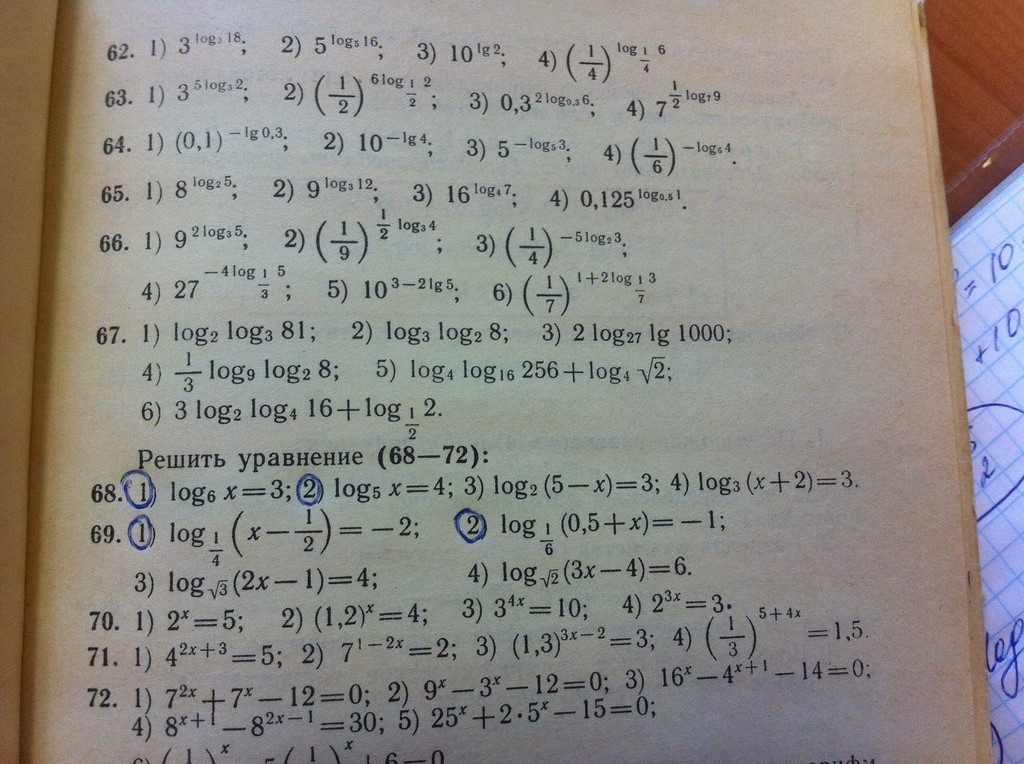 62. 1) 3^{log₃ 18}; 2) 5^{log₅ 16}; 3) 10^{lg 2}; 4) (1/4)^{log_{1/4} 6}
63. 1) 3^{5 log₃ 2}; 2) (1/2)^{6 log_{1/2} 2}; 3) 0,3^{2 log_{0,3} 6}; 4) 7^{1/2 log₇ 9}
64. 1) (0,1)^{−lg 0,3}; 2) 10^{−lg 4}; 3) 5^{−log₅ 3}; 4) (1/6)^{−log₆ 4}.
65. 1) 8^{log₂ 5}; 2) 9^{log₃ 12}; 3) 16^{log₄ 7}; 4) 0,125^{log_{0,5} 1}.
66. 1) 9^{2 log₃ 5}; 2) (1/9)^{1/2 log₃ 4}; 3) (1/4)^{−5 log₂ 3};
4) 27^{−4 log_{1/3} 5}; 5) 10^{3−2 lg 5}; 6) (1/7)^{1+2 log_{1/7} 3}
67. 1) log₂ log₃ 81; 2) log₃ log₂ 8; 3) 2 log₂₇ lg 1000;
4) 1/3 log₉ log₂ 8; 5) log₄ log₁₆ 256+log₄ √2;
6) 3 log₂ log₄ 16+log_{1/2} 2.
Решить уравнение (68—72):
68. 1) log₆ x=3; 2) log₅ x=4; 3) log₂ (5−x)=3; 4) log₃ (x+2)=3.
69. 1) log_{1/4} (x−1/2)=−2; 2) log_{1/6} (0,5+x)=−1;
3) log_{√3} (2x−1)=4; 4) log_{√2} (3x−4)=6.
70. 1) 2^x=5; 2) (1,2)^x=4; 3) 3^{4x}=10; 4) 2^{3x}=3.
71. 1) 4^{2x+3}=5; 2) 7^{1−2x}=2; 3) (1,3)^{3x−2}=3; 4) (1/3)^{5+4x}=1,5.
72. 1) 7^{2x}+7^x−12=0; 2) 9^x−3^x−12=0; 3) 16^x−4^{x+1}−14=0;
4) 8^{x+1}−8^{2x−1}=30; 5) 25^x+2·5^x−15=0;
= 10
+10
2
log